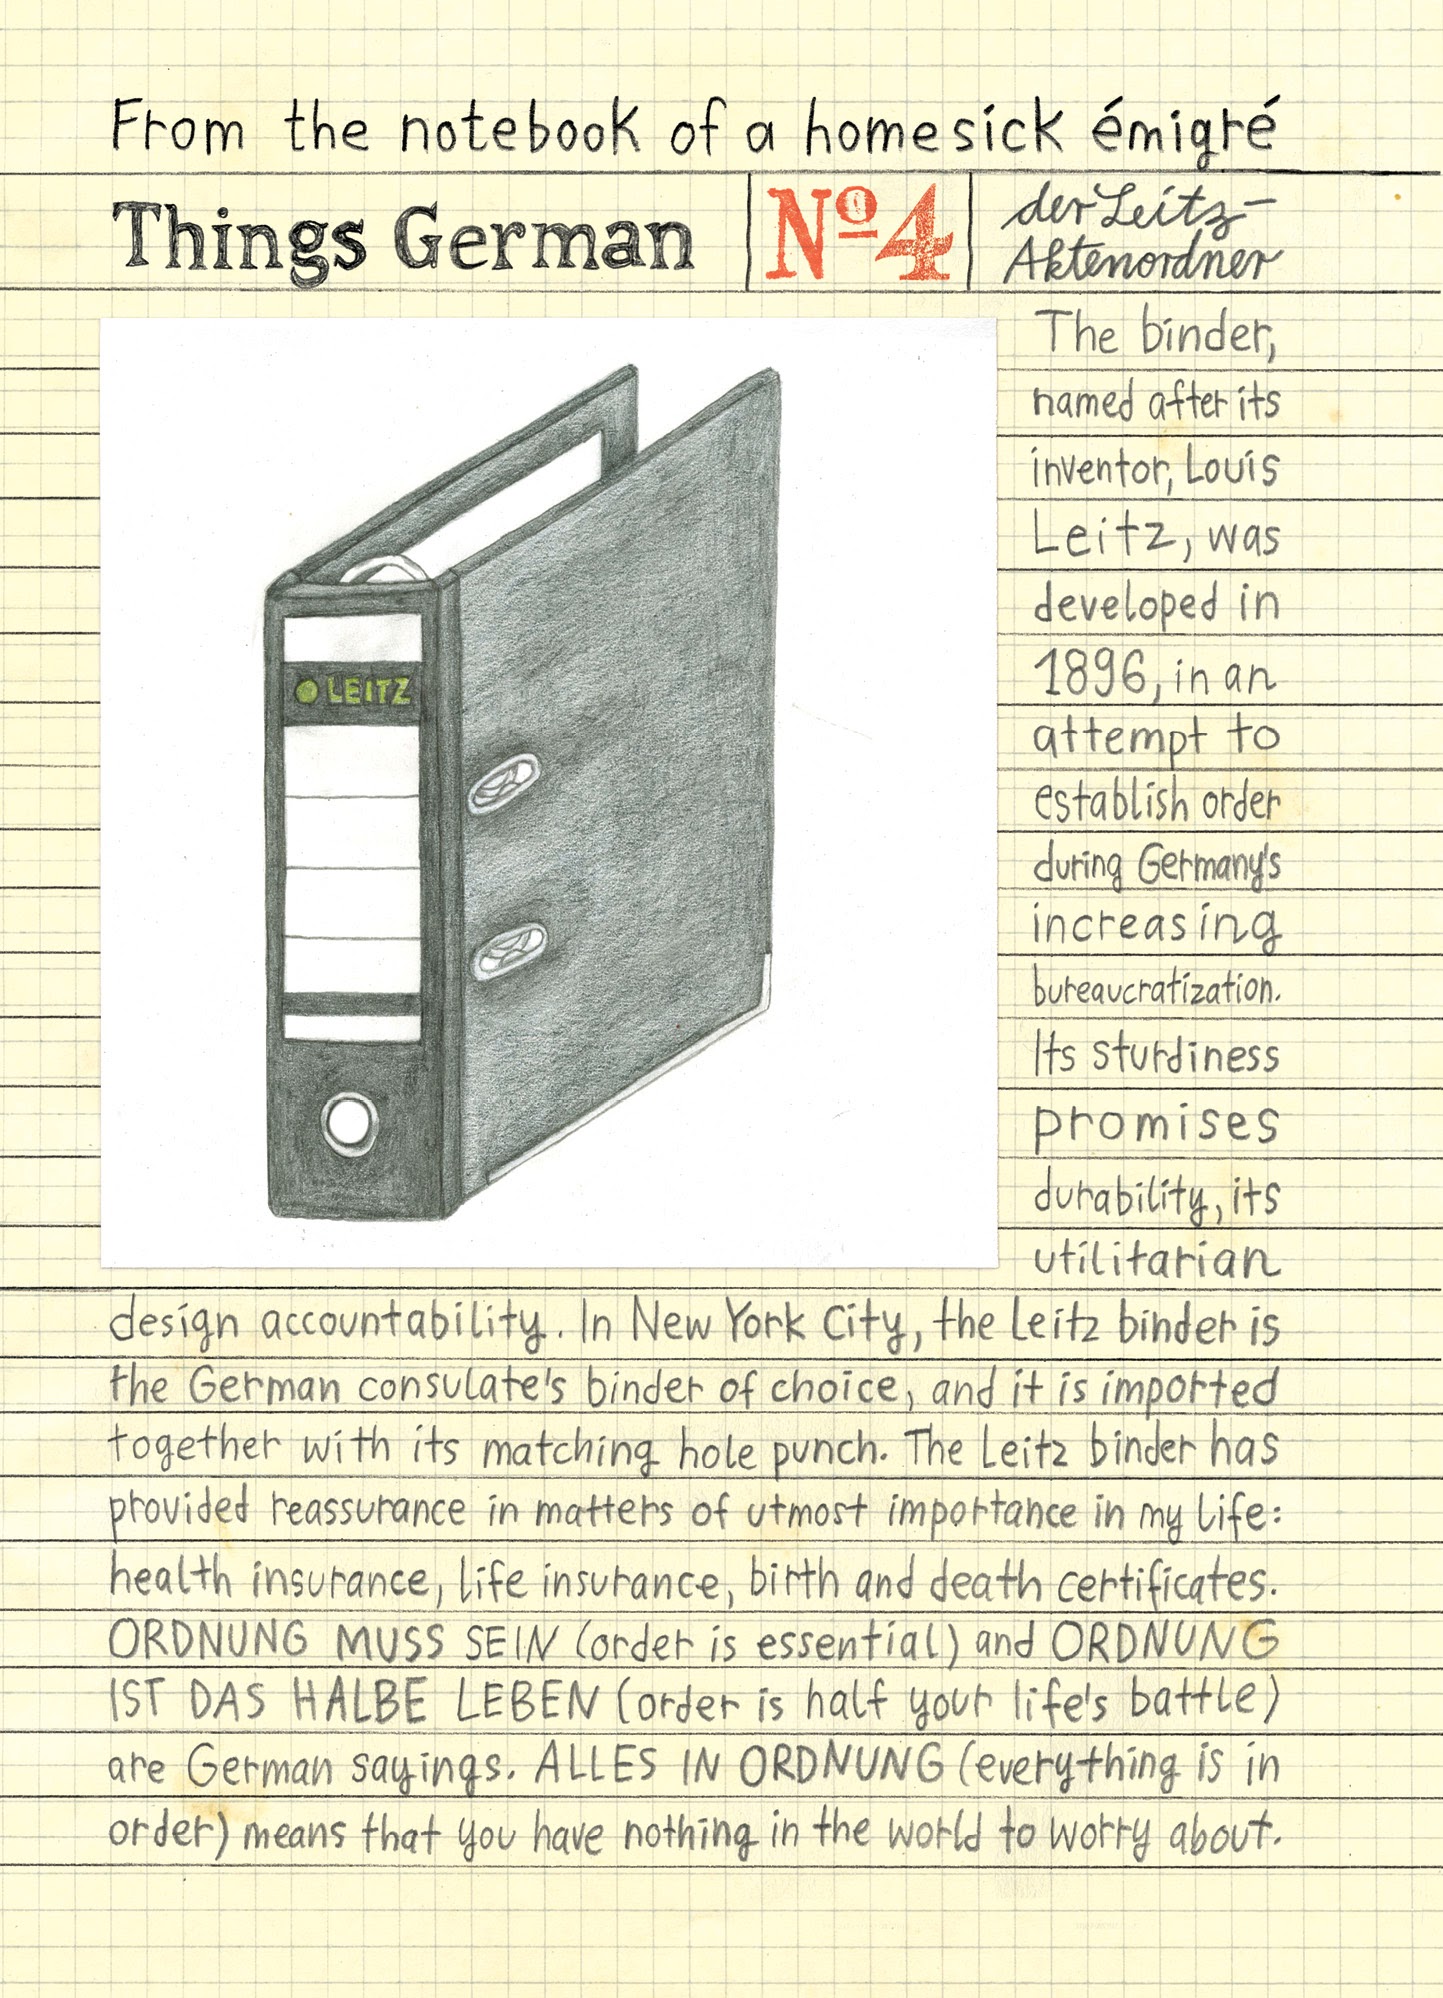 From the notebook of a homesick émigré
Things German
Nº4
der Leitz-
Aktenordner
LEITZ
The binder,
named after its
inventor, Louis
Leitz, was
developed in
1896, in an
attempt to
establish order
during Germany's
increasing
bureaucratization.
Its sturdiness
promises
durability, its
utilitarian
design accountability. In New York City, the Leitz binder is
the German consulate's binder of choice, and it is imported
together with its matching hole punch. The Leitz binder has
provided reassurance in matters of utmost importance in my life:
health insurance, life insurance, birth and death certificates.
ORDNUNG MUSS SEIN (order is essential) and ORDNUNG
IST DAS HALBE LEBEN (order is half your life's battle)
are German sayings. ALLES IN ORDNUNG (everything is in
order) means that you have nothing in the world to worry about.